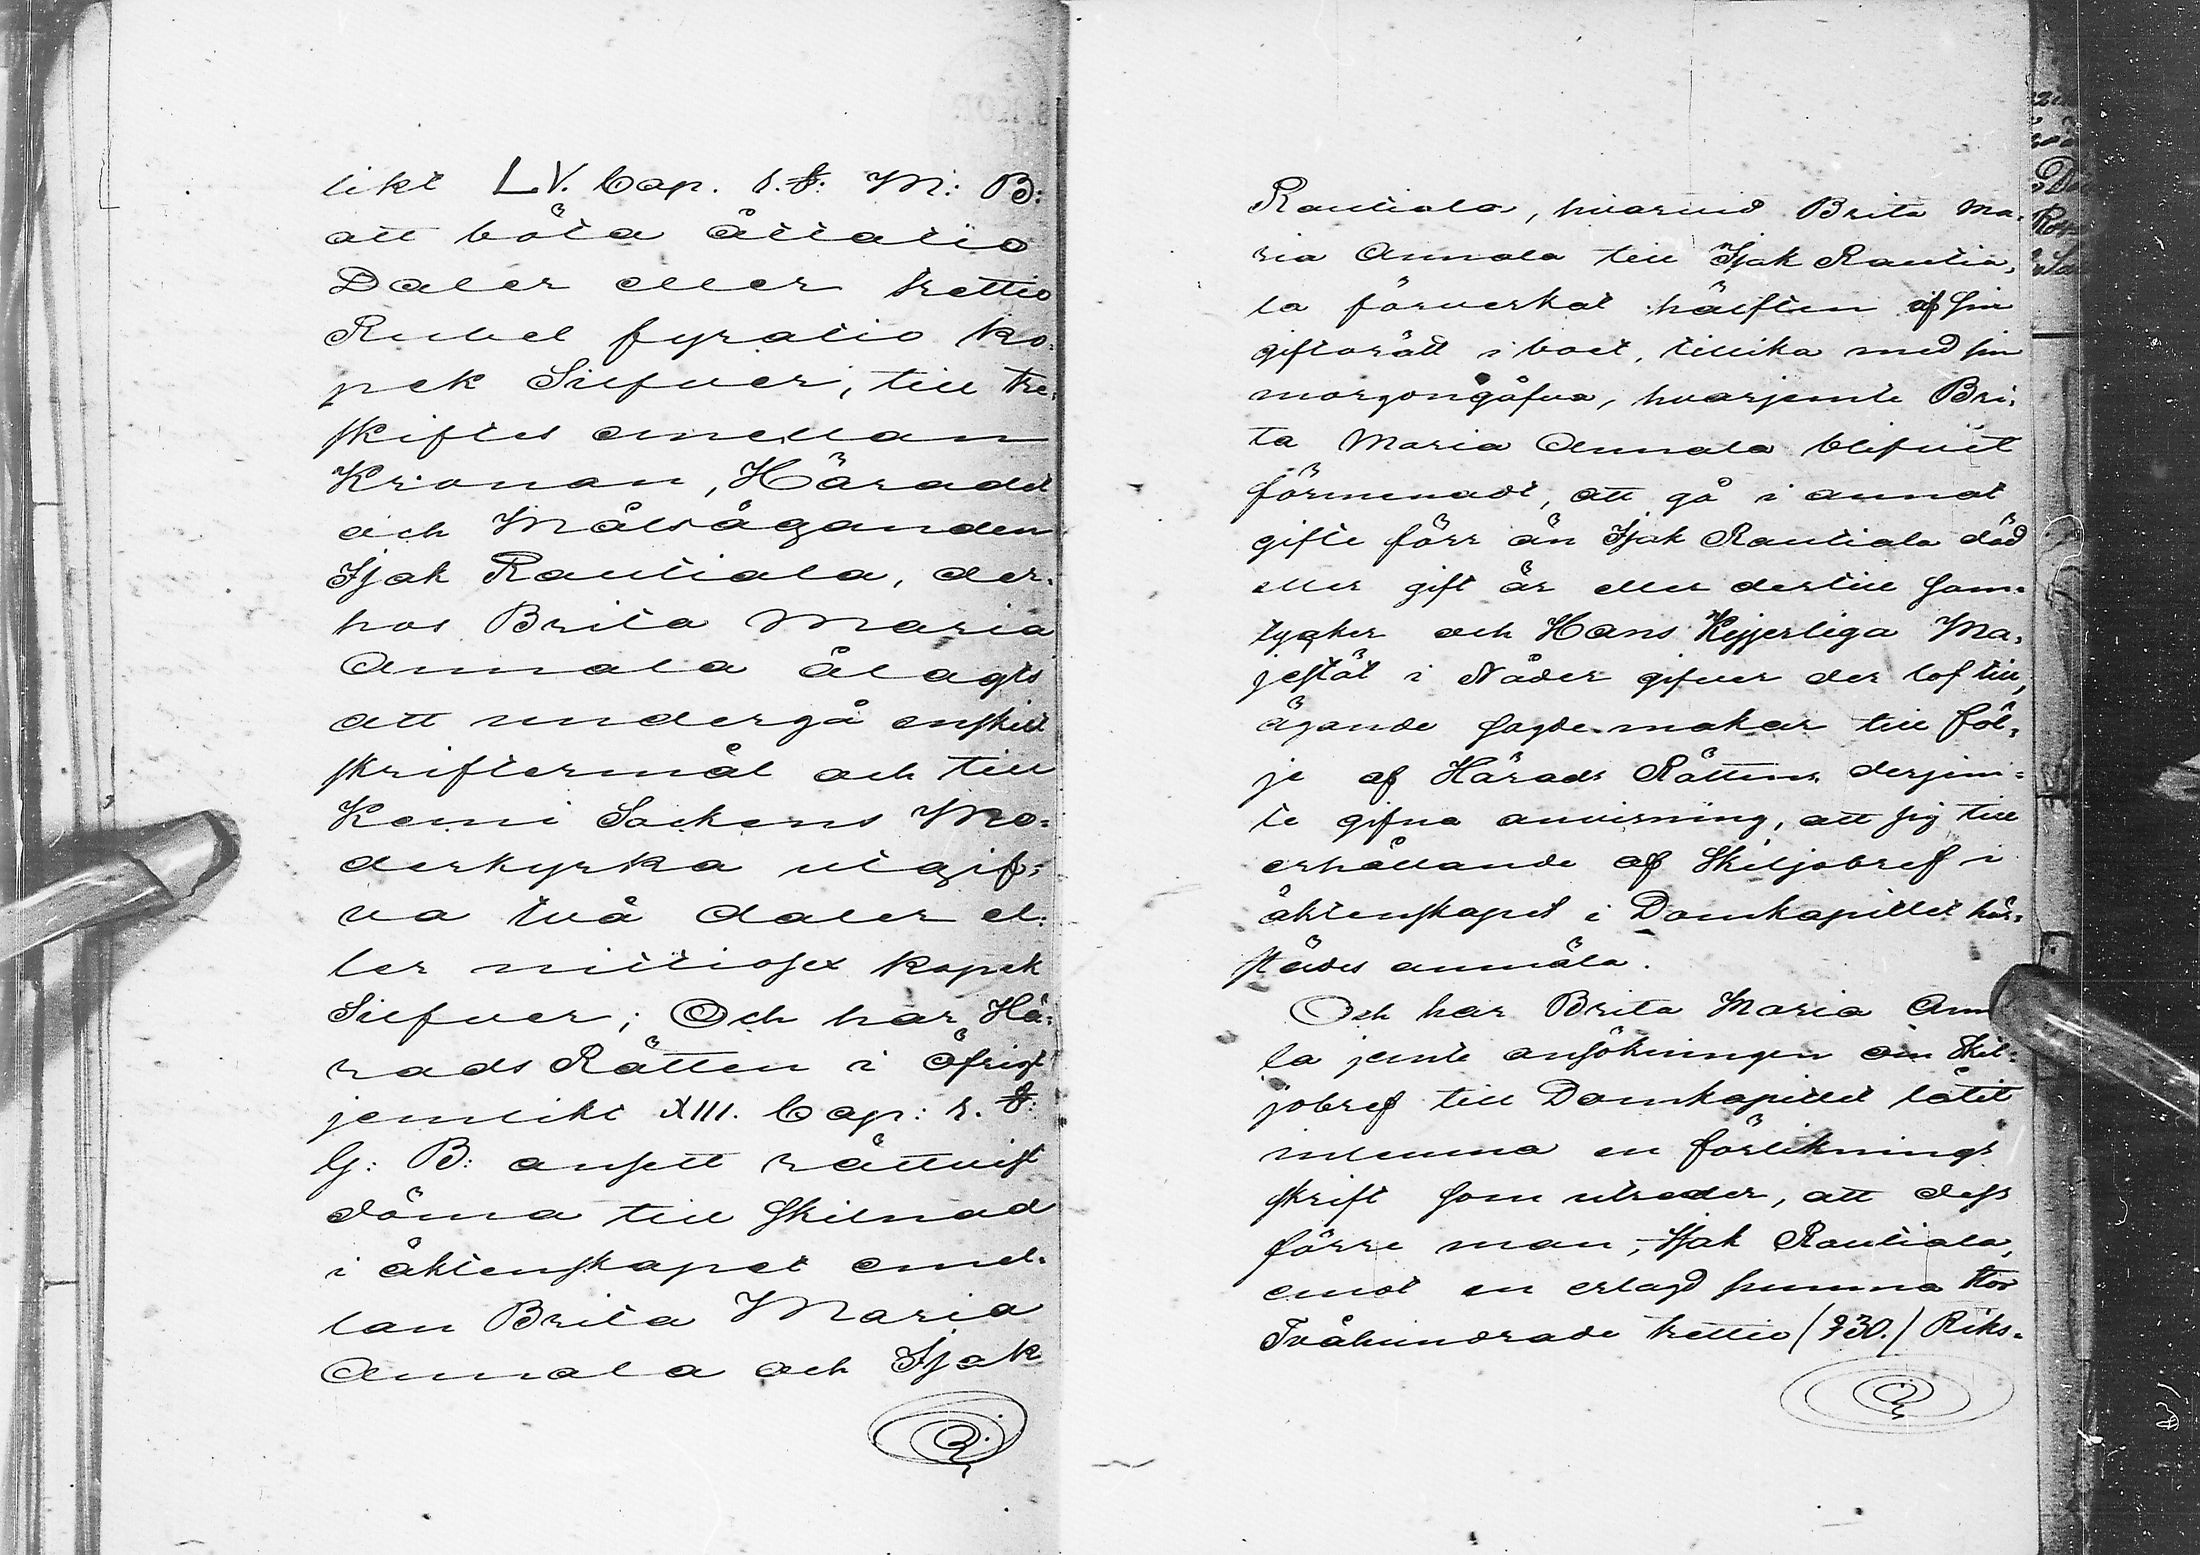 likt LV. Cap. 1. §: M: B:
att böta åttatio
Daler eller trettio
Rubel fyratio ko-
pek Silfver, till tre-
skiftes emellan
Kronan, Häradet
och Målsäganden
Isak Rautiala, der-
hos Brita Maria
Annala ålagts
att undergå enskilt
skriftermål och till
Kemi Sockens Mo-
derkyrka utgif-
va två daler el-
ler nittiosex kopek
Silfver; Och har Hä-
rads Rätten i öfrigt
jemlikt XIII. Cap: 1. §:
G: B: ansett rättvist
döma till skilnad
i äktenskapet emel-
lan Brita Maria
Annala och Isak
Rautiala, hvarvid Brita Ma-
ria Annala till Isak Rautia-
la förverkat hälften af sin
giftorätt i boet, tillika med sin
morgongåfva, hvarjemte Bri-
ta Maria Annala blifvit
förmenadt, att gå i annat
gifte förr än Isak Rautiala död
eller gift är eller dertill sam-
tycker och Hans Kejserliga Ma-
jestät i Nåder gifver der lof till,
ägande sagde makar till föl-
je af Härads Rättens derjem-
te gifna anvisning, att sig till
erhållande af Skiljobref i
äktenskapet i Domkapitlet här-
städes anmäla.
Och har Brita Maria Ann
la jemte ansökningen om Skil-
jobref till Domkapitlet låtit
inlemna en förliknings
skrift som utreder, att dess
förre man, Isak Rautiala,
emot en erlagd summa stor
Tvåhundrade trettio (230.) Riks-